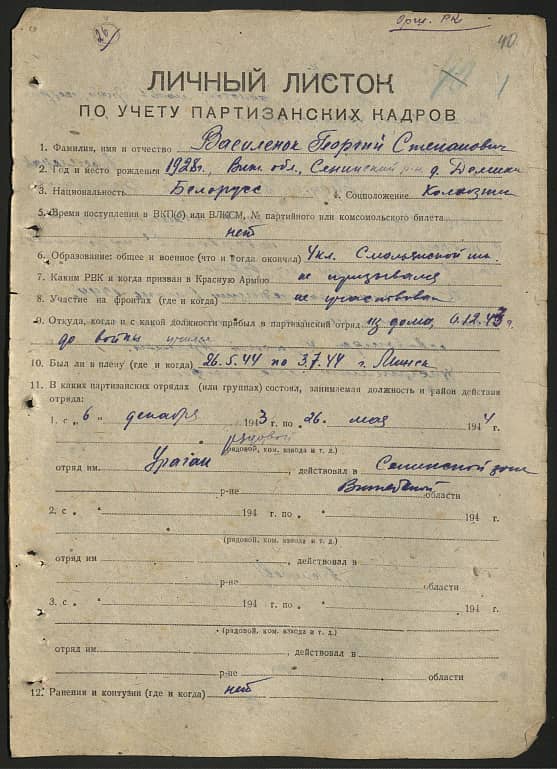 Орш. РК
26
40
1
ЛИЧНЫЙ ЛИСТОК
ПО УЧЕТУ ПАРТИЗАНСКИХ КАДРОВ
1. Фамилия, имя и отчество Василенок Георгий Степанович
2. Год и место рождения 1928г., Вит. обл., Сенинский р-н д.
3. Национальность Белорусс 4. Соцположение
5. Время поступления в ВКП(б) или ВЛКСМ, № партийного или комсомольского билета
нет
6. Образование: общее и военное (что и когда окончил) 4 кл. Смольянской шк.
7. Каким РВК и когда призван в Красную Армию не призывался
8. Участие на фронтах (где и когда) не участвовал
9. Откуда, когда и с какой должности прибыл в партизанский отряд из дома, 6.12.43 г.
до войны учился
10. Был ли в плену (где и когда) 26.5.44 по 3.7.44 г. Минск
11. В каких партизанских отрядах (или группах) состоял, занимаемая должность и район действия
отряда:
1. с „ 6 " декабря 1943 г. по „ 26. мая 1944 г.
рядовой
(рядовой, ком. взвода и т. д.)
отряд им. Ураган, действовал в Сенинской зоне
р-не Витебской области
2. с „ " 194 г. по „ " 194 г.
(рядовой, ком. взвода и т. д.)
отряд им , действовал в
р-не области
3. с „ " 194 г. по „ " 194 г.
(рядовой, ком. взвода и т. д.)
отряд им. , действовал в
р-не области
12. Ранения и контузии (где и когда) нет